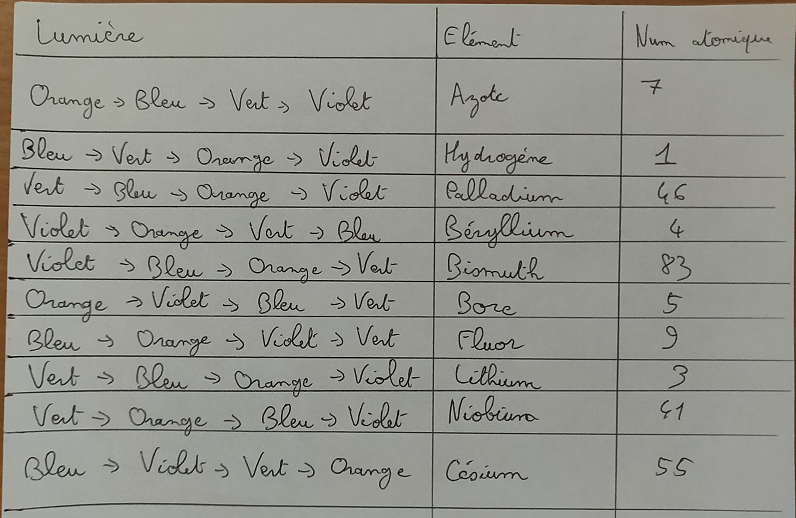 Lumière Elément Num atomique
Orange → Bleu → Vert → Violet Azote 7
Bleu → Vert → Orange → Violet Hydrogéne 1
Vert → Bleu → Orange → Violet Palladium 46
Violet → Orange → Vert → Bleu Béryllium 4
Violet → Bleu → Orange → Vert Bismuth 83
Orange → Violet → Bleu → Vert Bore 5
Bleu → Orange → Violet → Vert Fluor 9
Vert → Bleu → Orange → Violet Lithium 3
Vert → Orange → Bleu → Violet Niobium 41
Bleu → Violet → Vert → Orange Césium 55